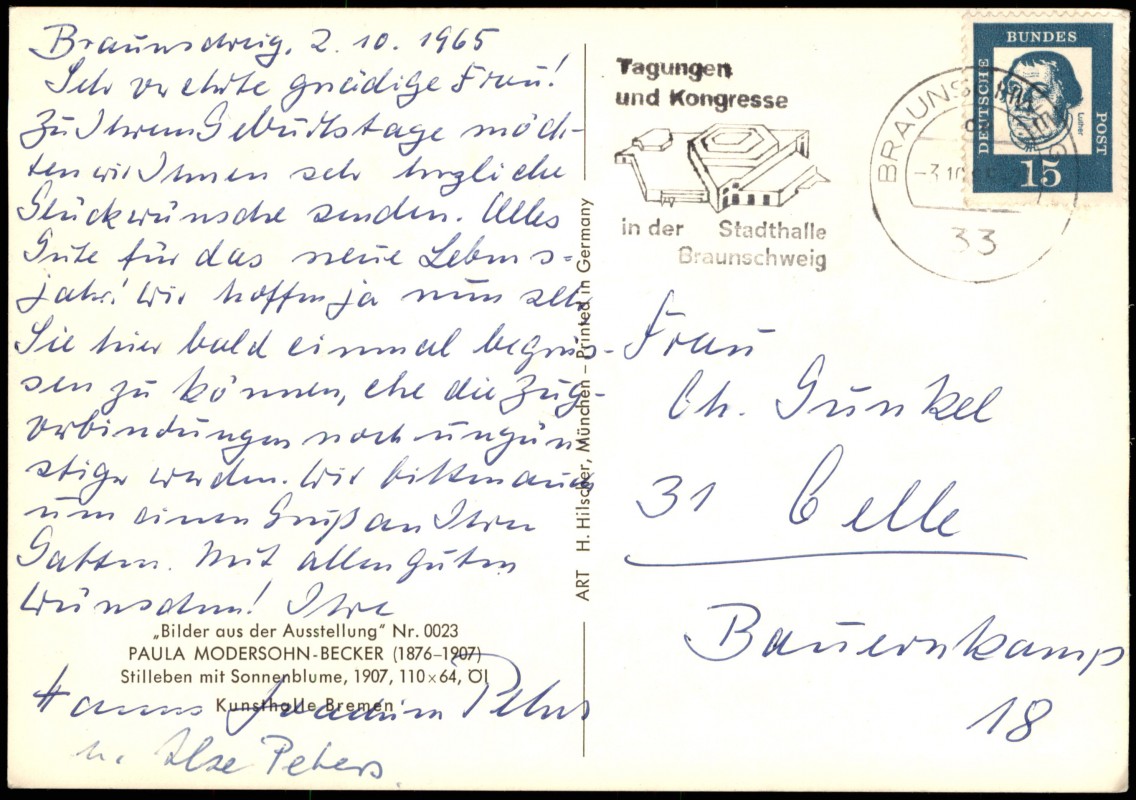 Braunschweig, 2.10.1965
Sehr verehrte gnädige Frau!
Zu Ihrem Geburtstage möch-
ten wir Ihnen sehr herzliche
Glückwünsche senden. Alles
Gute für das neue Lebens-
jahr! Wir hoffen ja nun sehr
Sie hier bald einmal begrüs-
sen zu können, ehe die Zug-
verbindungen noch ungün-
stiger werden. Wir bitten auch
um einen Gruß an Ihren
Gatten. Mit allen guten
Wünschen! Ihre
„Bilder aus der Ausstellung" Nr. 0023
PAULA MODERSOHN-BECKER (1876–1907)
Stilleben mit Sonnenblume, 1907, 110×64, Öl
Kunsthalle Bremen
Hanns Joachim Peters
u. Ilse Peters.
ART H. Hilscher, München – Printed in Germany
Tagungen
und Kongresse
in der Stadthalle
Braunschweig
BRAUNSCHWEIG
33
DEUTSCHE
BUNDES
POST
Luther
15
Frau
Ch. Gunkel
31 Celle
Bauernkamp
18